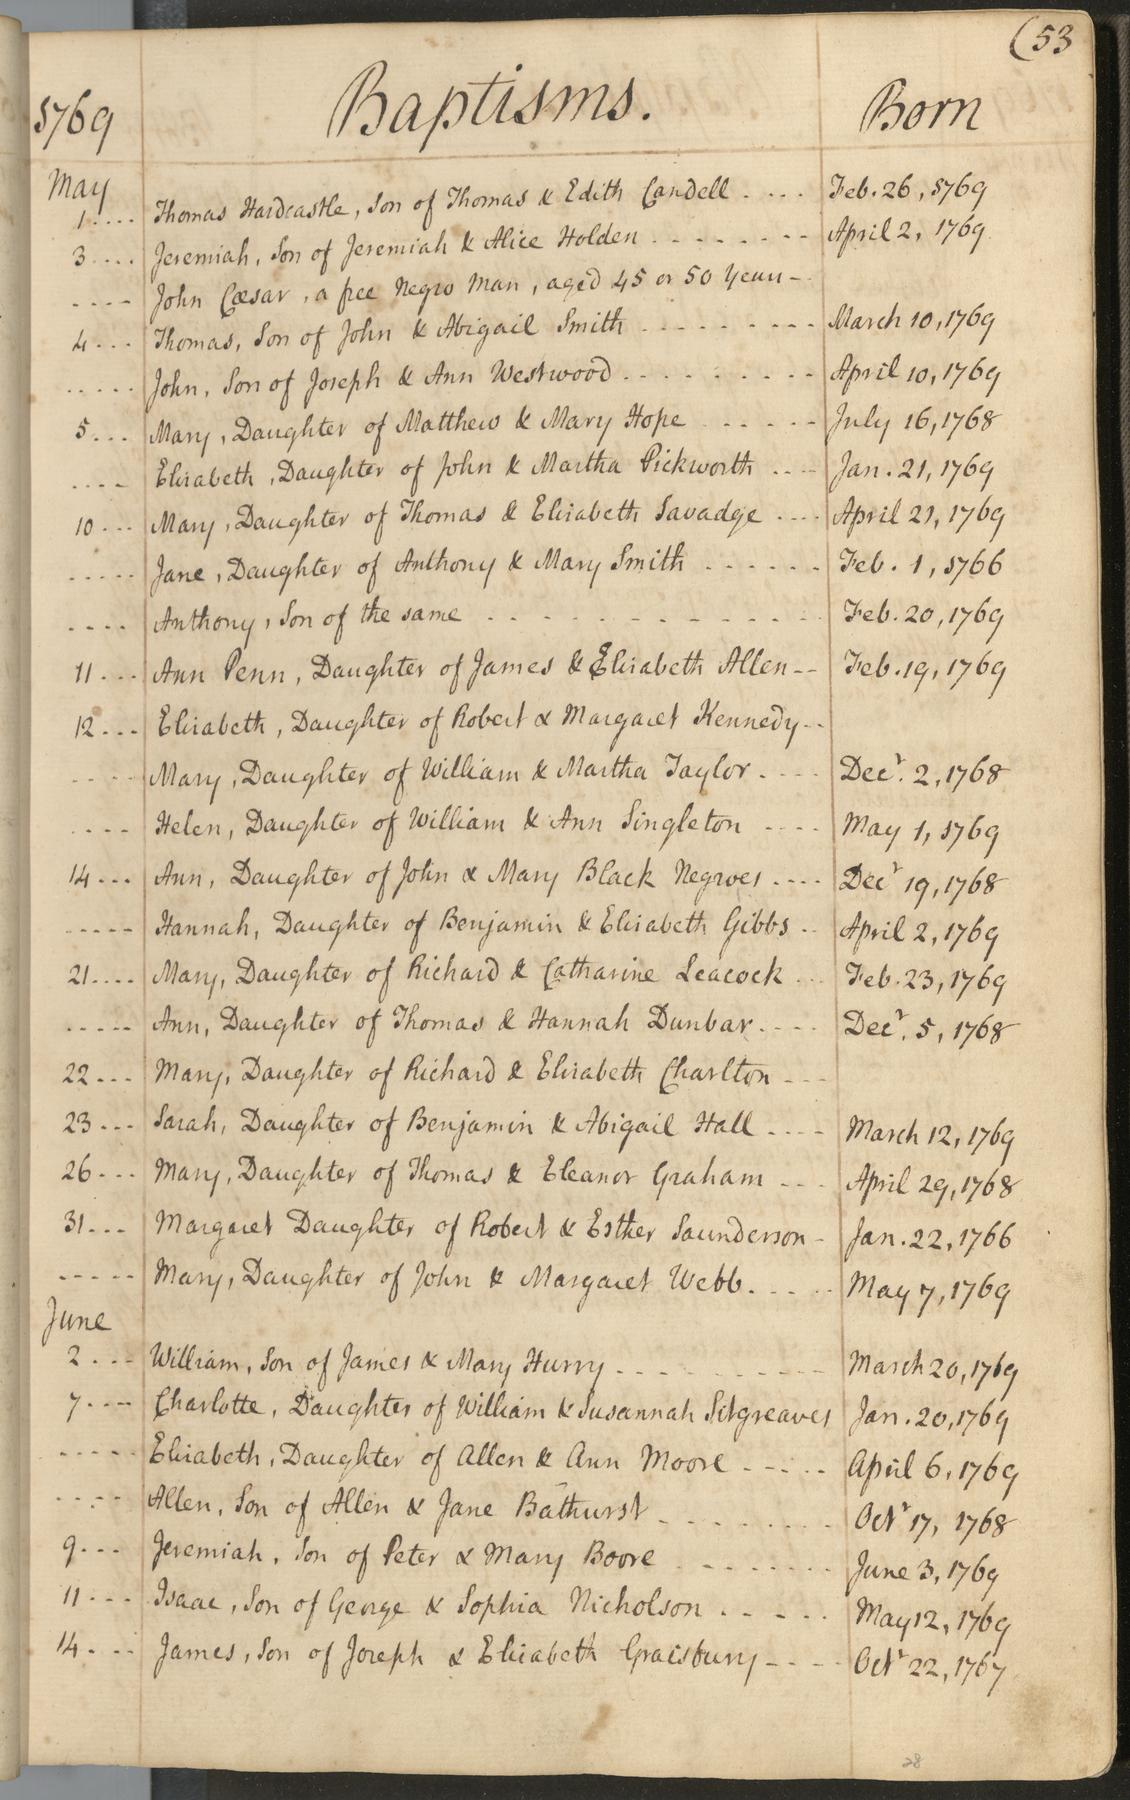 (53
1769 Baptisms. Born
May
1.... Thomas Hardcastle, Son of Thomas & Edith Candell .... Feb. 26, 1769
3.... Jeremiah, Son of Jeremiah & Alice Holden - - - - - - - - April 2, 1769
---- John Cæsar, a free Negro Man, aged 45 or 50 Years -
4... Thomas, Son of John & Abigail Smith - - - - - - - - - March 10, 1769
..... John, Son of Joseph & Ann Westwood . . . . . . . . . April 10, 1769
5... Mary, Daughter of Matthew & Mary Hope - - - - - - July 16, 1768
.... Elisabeth, Daughter of John & Martha Pickworth .... Jan. 21, 1769
10... Mary, Daughter of Thomas & Elisabeth Savadge .... April 21, 1769
..... Jane, Daughter of Anthony & Mary Smith - - - - - - Feb. 1, 1766
.... Anthony, Son of the same - - - - - - - - - - - - - - Feb. 20, 1769
11... Ann Penn, Daughter of James & Elisabeth Allen -- Feb. 19, 1769
12... Elisabeth, Daughter of Robert & Margaret Kennedy --
---- Mary, Daughter of William & Martha Taylor .... Decr. 2, 1768
---- Helen, Daughter of William & Ann Singleton ---- May 1, 1769
14... Ann, Daughter of John & Mary Black Negroes .... Decr 19, 1768
----- Hannah, Daughter of Benjamin & Elisabeth Gibbs .. April 2, 1769
21.... Mary, Daughter of Richard & Catharine Leacock ... Feb. 23, 1769
----- Ann, Daughter of Thomas & Hannah Dunbar .... Decr. 5, 1768
22... Mary, Daughter of Richard & Elisabeth Charlton ---
23... Sarah, Daughter of Benjamin & Abigail Hall .... March 12, 1769
26... Mary, Daughter of Thomas & Eleanor Graham --- April 29, 1768
31... Margaret Daughter of Robert & Esther Saunderson - Jan. 22, 1766
----- Mary, Daughter of John & Margaret Webb. .... May 7, 1769
June
2... William, Son of James & Mary Hurry - - - - - - - - - - March 20, 1769
7.... Charlotte, Daughter of William & Susannah Sitgreaves Jan. 20, 1769
----- Elisabeth, Daughter of Allen & Ann Moore ----- April 6, 1769
---- Allen, Son of Allen & Jane Bathurst - - - - - - - - Octr 17, 1768
9... Jeremiah, Son of Peter & Mary Boore - - - - - - - June 3, 1769
11... Isaac, Son of George & Sophia Nicholson . . . . . May 12, 1769
14... James, Son of Joseph & Elisabeth Graisbury ---- Octr 22, 1767
28